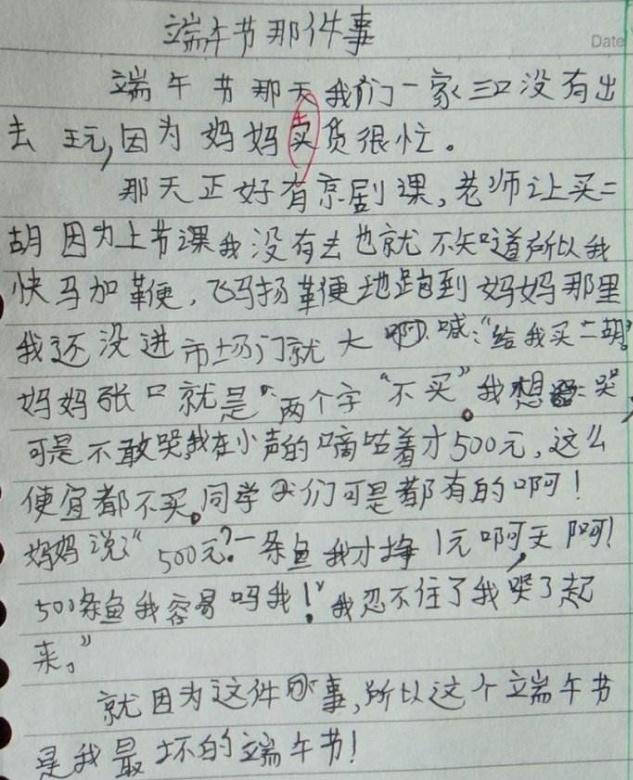 端午节那件事
Date
端午节那天我们一家三口没有出
去玩,因为妈妈卖货很忙。
那天正好有京剧课,老师让买二
胡因为上节课我没有去也就不知道所以我
快马加鞭,飞马扬鞭地跑到妈妈那里
我还没进市场门就大啊喊:“给我买二胡”
妈妈张口就是“两个字“不买”。我想哭
可是不敢哭,我在小声的嘀咕着才500元,这么
便宜都不买。同学们可是都有的啊!
妈妈说:“500元?一条鱼我才挣1元啊,天啊!
500条鱼我容易吗我!”我忍不住了我哭了起
来。”
就因为这件事,所以这个端午节
是我最坏的端午节!